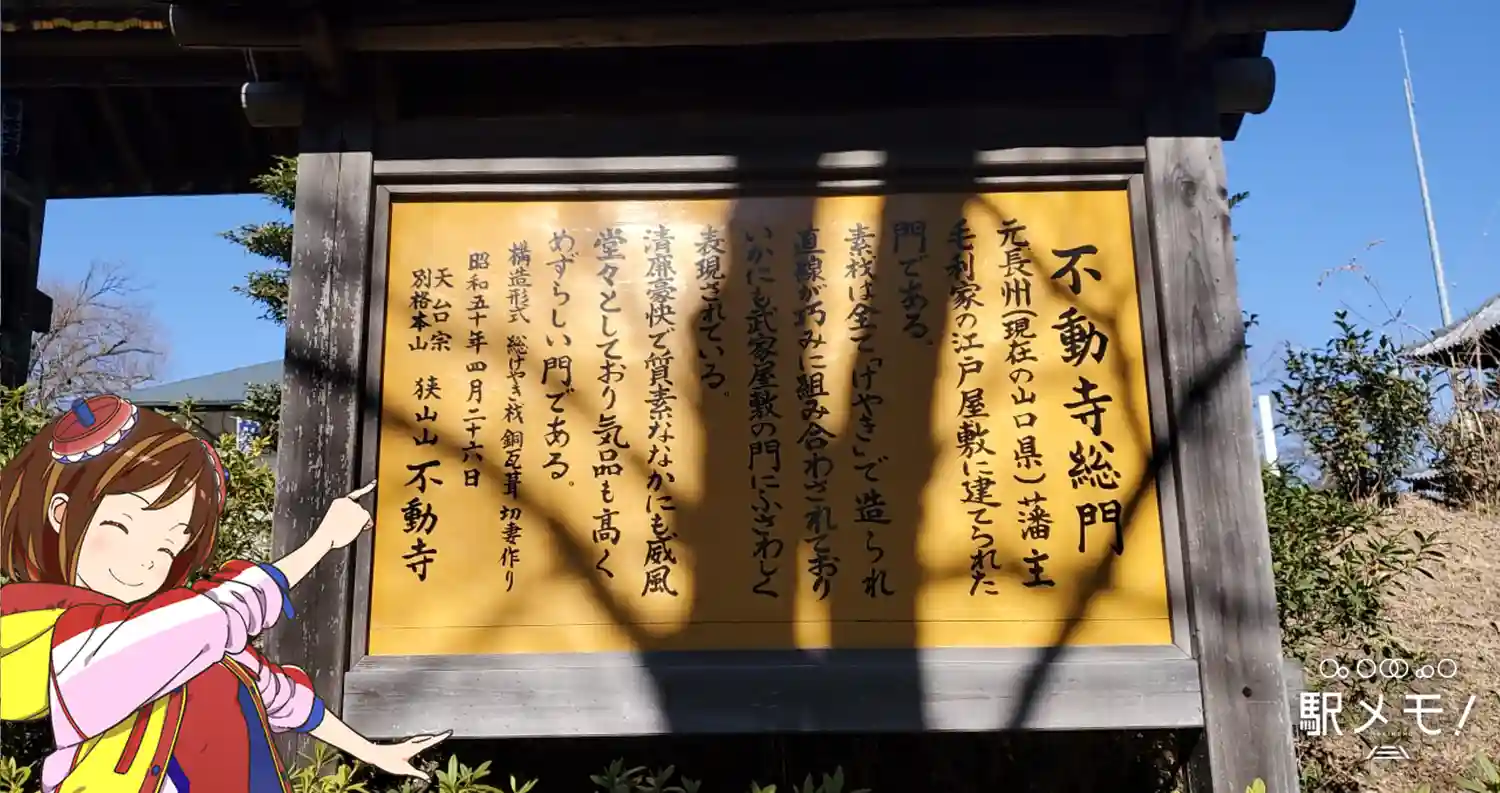 不動寺総門
元長州(現在の山口県)藩主
毛利家の江戸屋敷に建てられた
門である。
素材は全て「けやき」で造られ
直線が巧みに組み合わされており
いかにも武家屋敷の門にふさわしく
表現されている。
清廉豪快で質素ななかにも威風
堂々としており気品も高く
めずらしい門である。
構造形式 総けやき材 銅瓦葺 切妻作り
昭和五十年四月二十六日
天台宗
別格本山 狭山山 不動寺
駅メモ!